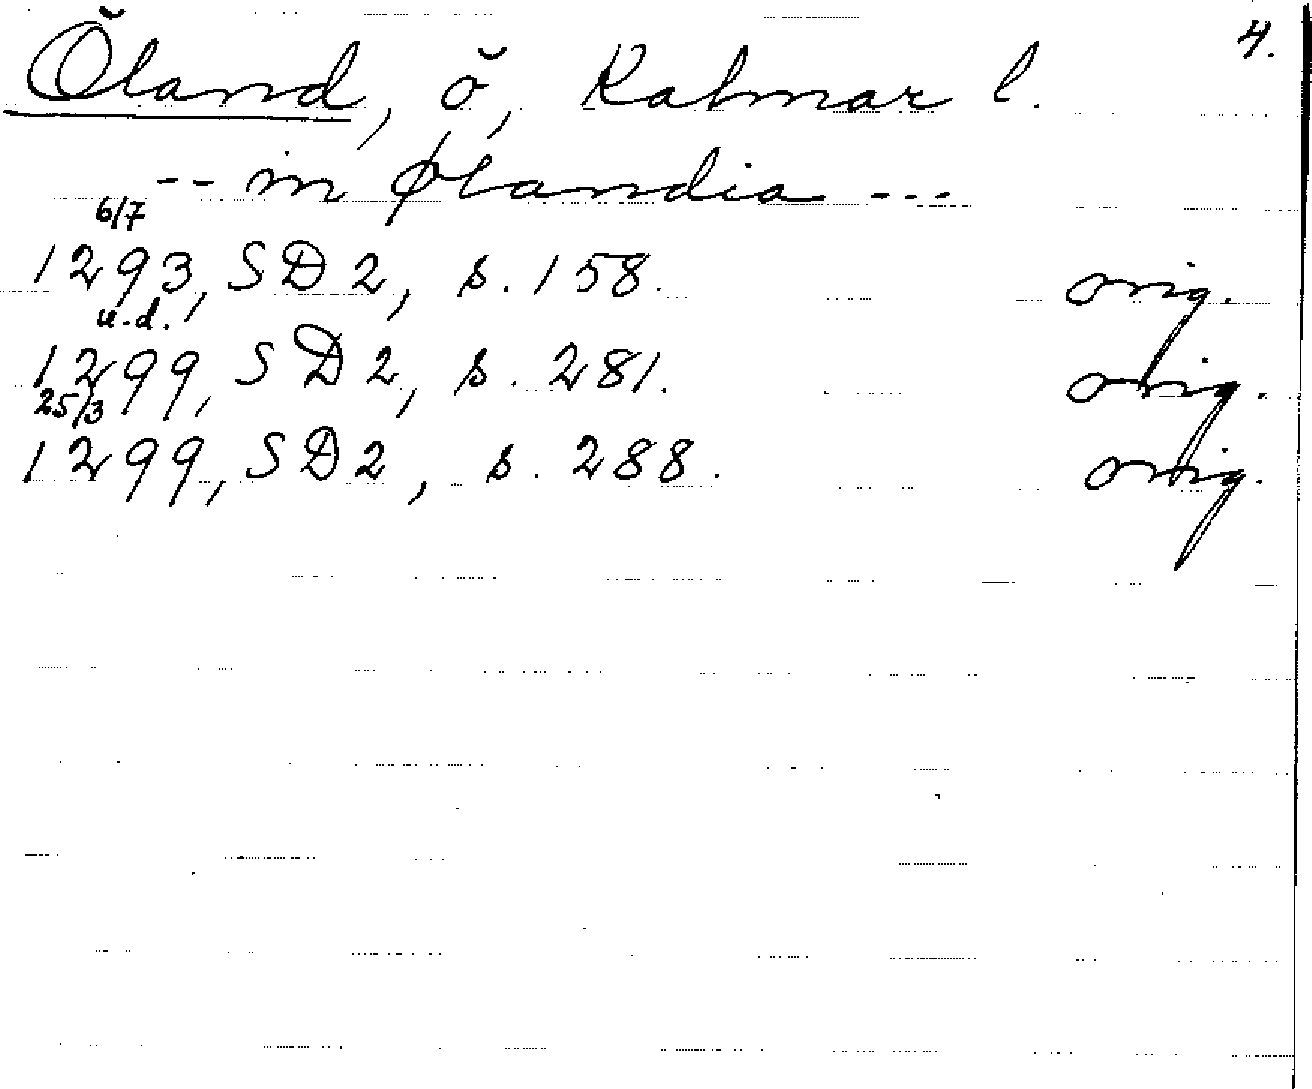 4.
Öland, ö, Kalmar l.
-- in Ølandia ---
6/7
1293, SD 2, s. 158. orig.
u.d.
1299, SD 2, s. 281. orig.
25/3
1299, SD 2, s. 288. orig.